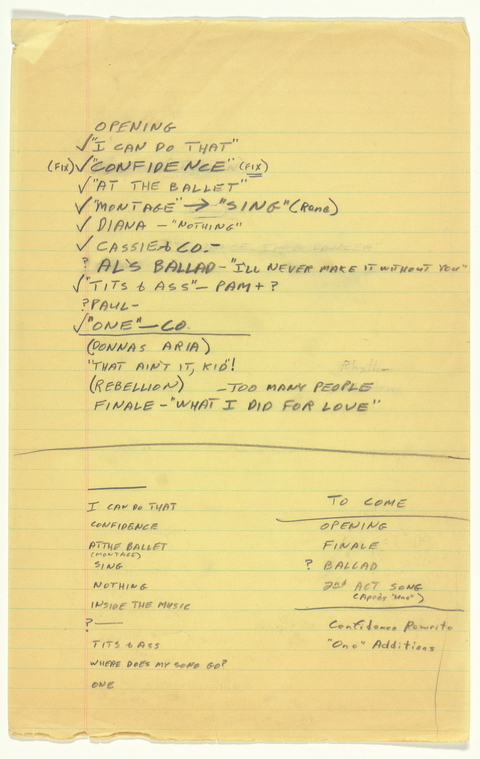 OPENING
✓ "I CAN DO THAT"
(FIX) ✓ "CONFIDENCE" (FIX)
✓ "AT THE BALLET"
✓ "MONTAGE" → "SING" (Rene)
✓ DIANA – "NOTHING"
✓ CASSIE & CO. –
? AL'S BALLAD – "I'LL NEVER MAKE IT WITHOUT YOU"
✓ "TITS & ASS" – PAM + ?
? PAUL –
✓ "ONE" – CO.
(DONNAS ARIA)
"THAT AIN'T IT, KID"!
(REBELLION) – TOO MANY PEOPLE
FINALE – "WHAT I DID FOR LOVE"
I CAN DO THAT
CONFIDENCE
AT THE BALLET
(MONTAGE)
SING
NOTHING
INSIDE THE MUSIC
? —
TITS & ASS
WHERE DOES MY SONG GO?
ONE
TO COME
OPENING
FINALE
? BALLAD
2nd ACT SONG
(Après "One")
Confidence Rewrite
"One" Additions